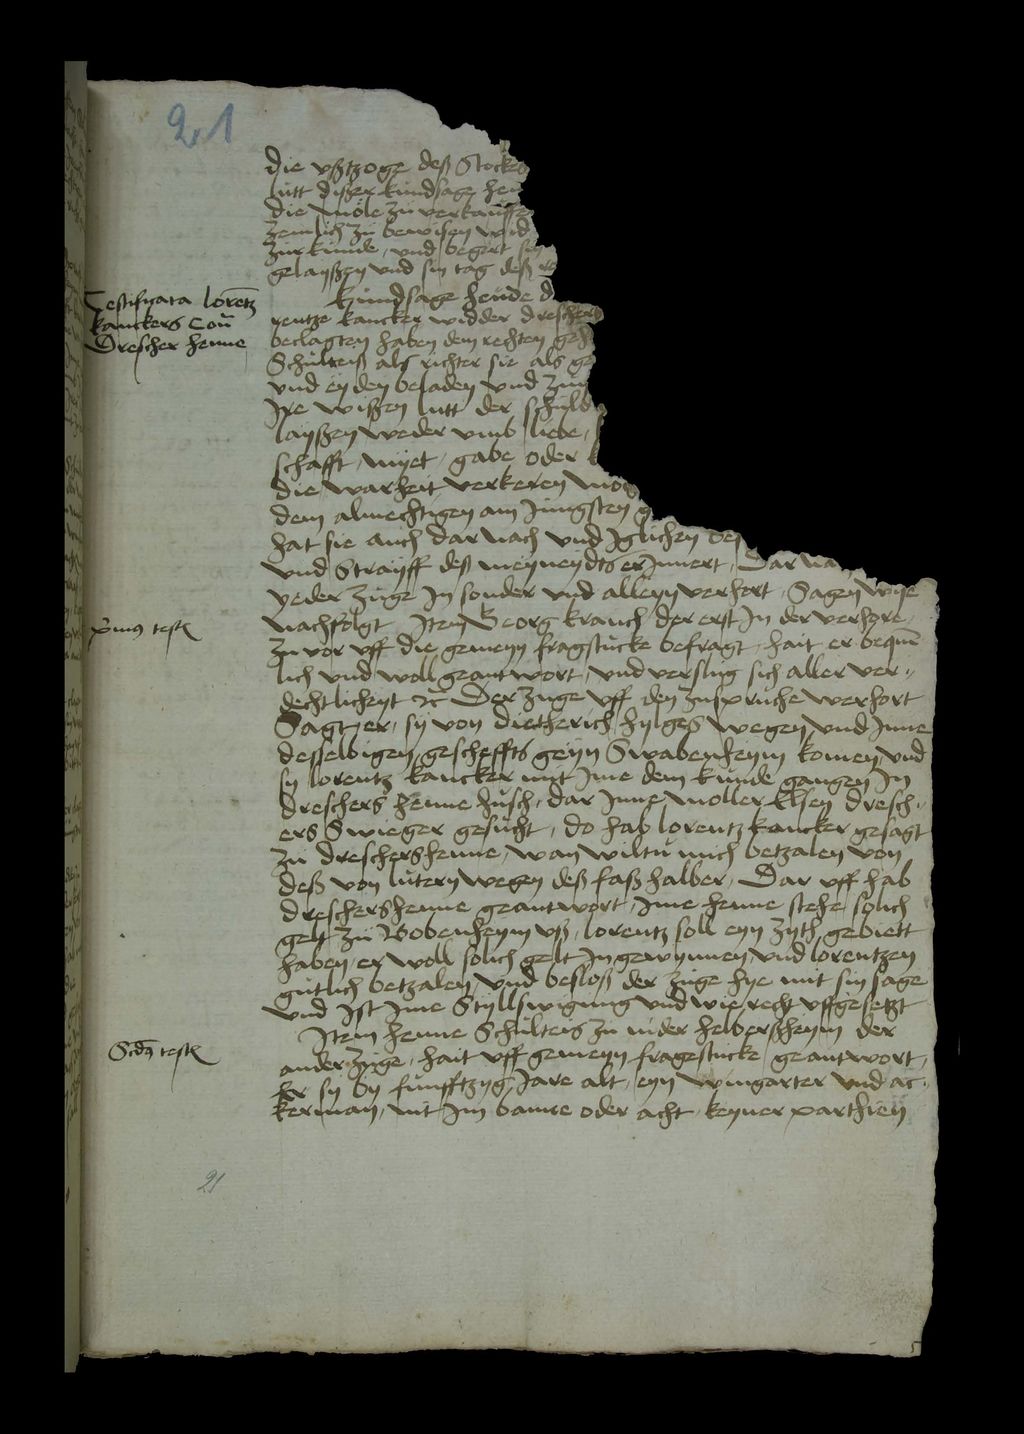 21
die vßtzoge deß Stockes
lutt dißer kundsage hen
die mole zu verkauffe
zemlich zu bewisen wid
zur kunde, vnd begert sin
gelayßen vnd sin tag deß re
Kundsage heude d
Testificata lorentz
kanckers Con
Drescher henne
rentze kancker widder dreschers
beclagten haben dem rechten geh
Schulteiß als richter sie als ge
vnd in den beladen vnd zum
Ire wißen lutt der schuld
layßen weder vmb liebe,
schafft, myet, gabe oder
die warheit verkeren mog
dem almechtigen am Jungsten g
hat sie auch dar nach vnd Iglichen des
vnd Strayff deß meyneydts er Innert, Dar na
yeder zuge In sonder vnd alleyn verhort, Sagen wye
primus testis
nachfolgt, Item Georg krauch der erst In der verhore,
zu vor vff die gemeyn fragstucke befragt, hait er bequem
lich vnd woll geantwort, vnd verslug sich aller ver-
dechtlicheyt etc Der zuge vff den zuspruche verhort
Sagt er, sy von dietherich hylges wegen vnd Inne
desselbigen gescheffts geyn Swabenheym komen, vnd
sy lorentz kancker mit Ime dem kunde gangen In
dreschers henne husch, dar Inne moller Elsen dresch-
ers Swieger gesucht, do hab lorentz kancker gesagt
zu dreschershenne, wan wiltu mich betzalen von
deß von lutern wegen deß faß halber, Dar vff hab
dreschershenne geantwort, Ime henne stehe solich
gelt zu Bobenheym vß, lorentz soll eyn zyth gebiett
haben, er woll solich gelt Ingewynnen, vnd lorentzen
gutlich betzalen, vnd besloß der zuge hye mit sin sage
vnd Ist Ime Styllswigung vnd wie recht vffgesetzt
Secundus testis
Item henne Schulteis zu nider helbersheym der
ander zuge, hait vff gemeyn fragestucke geantwort,
Er sy by funfftzyg Jare alt, eyn wingarter vnd ac-
kerman, nit Im banne oder acht, keyner parthien
21